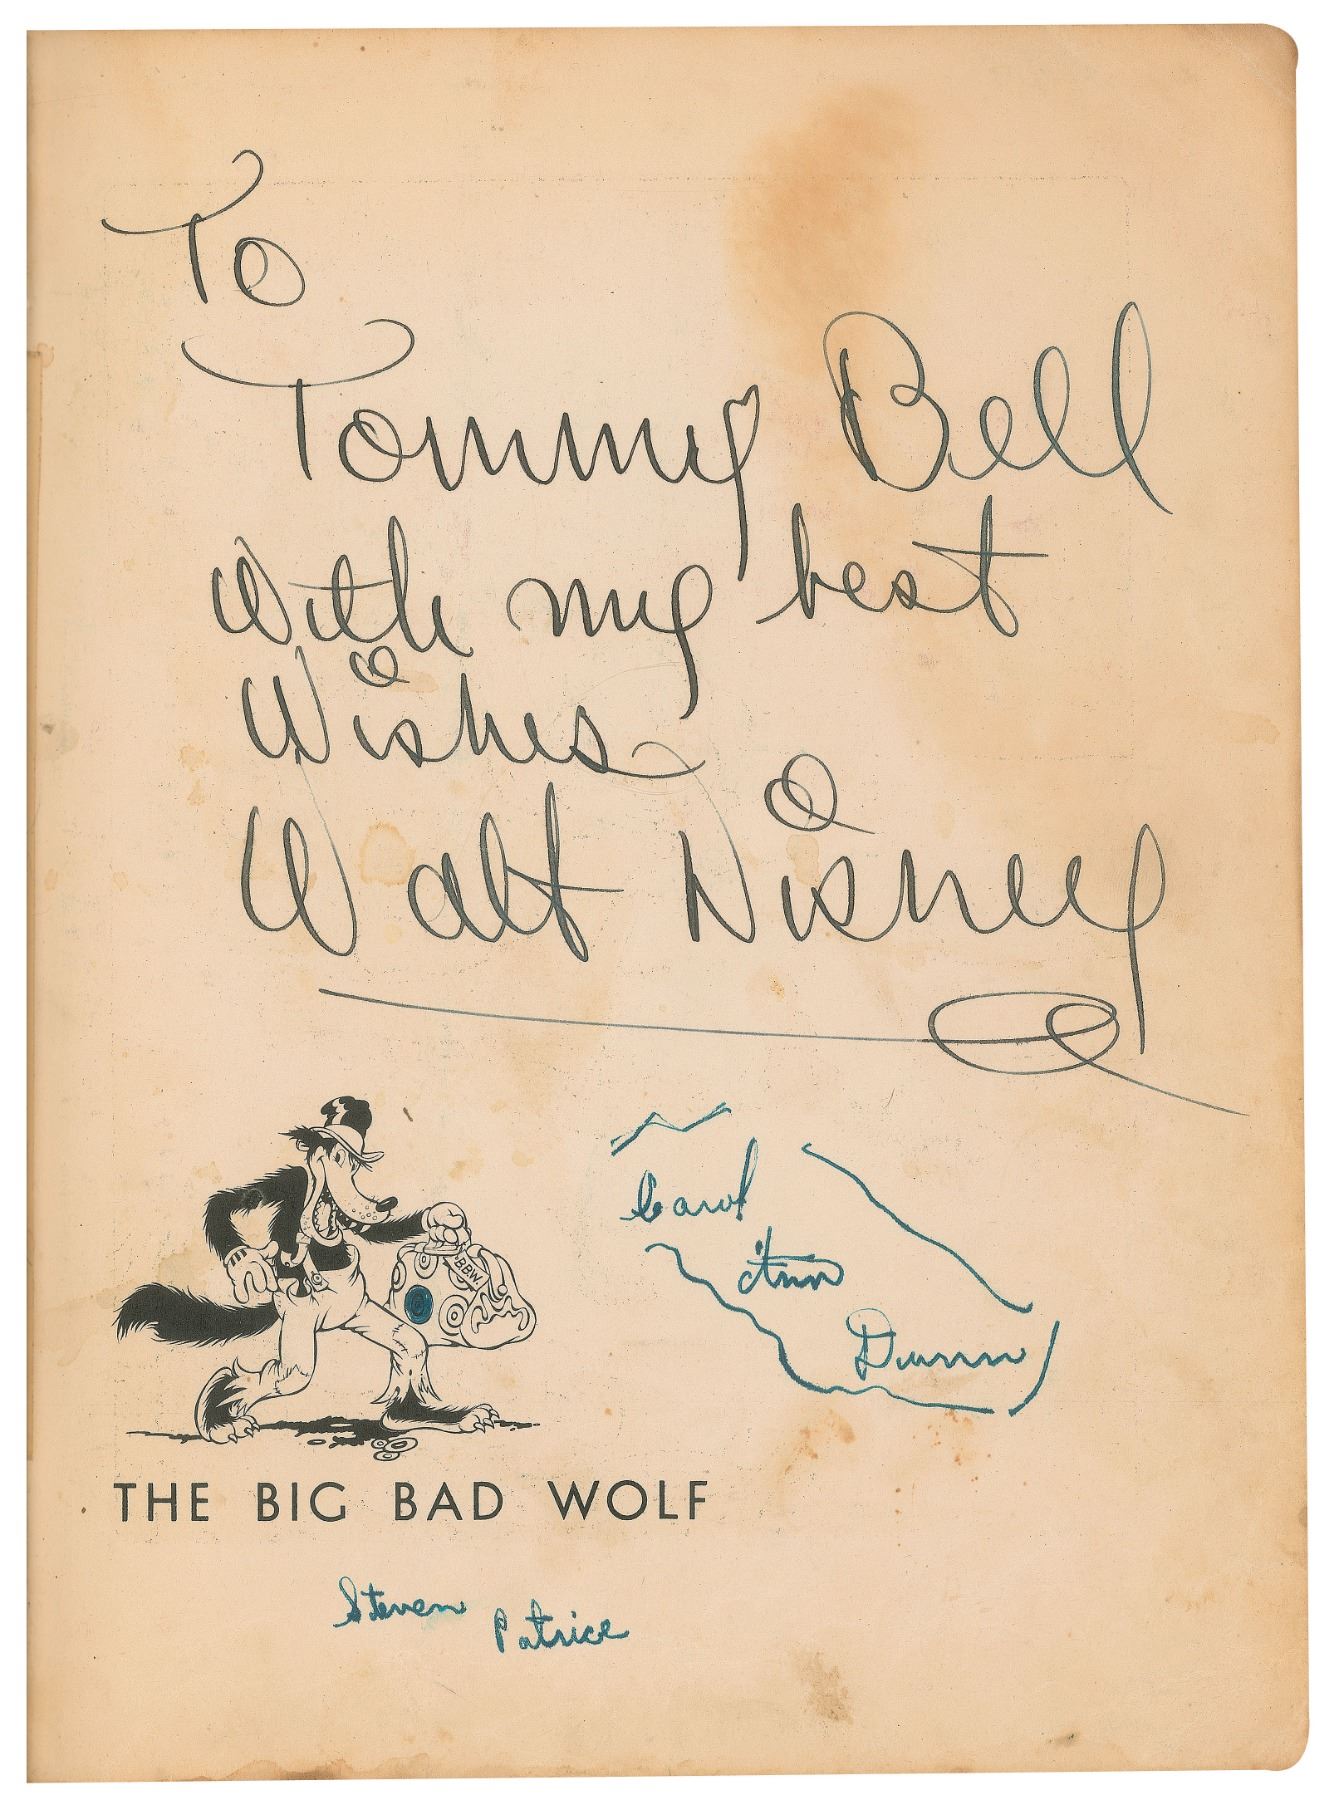 To
Tommy Bell
With my best
Wishes
Walt Disney
Carol
Ann
Dunn
B.B.W.
THE BIG BAD WOLF
Steven Patrice